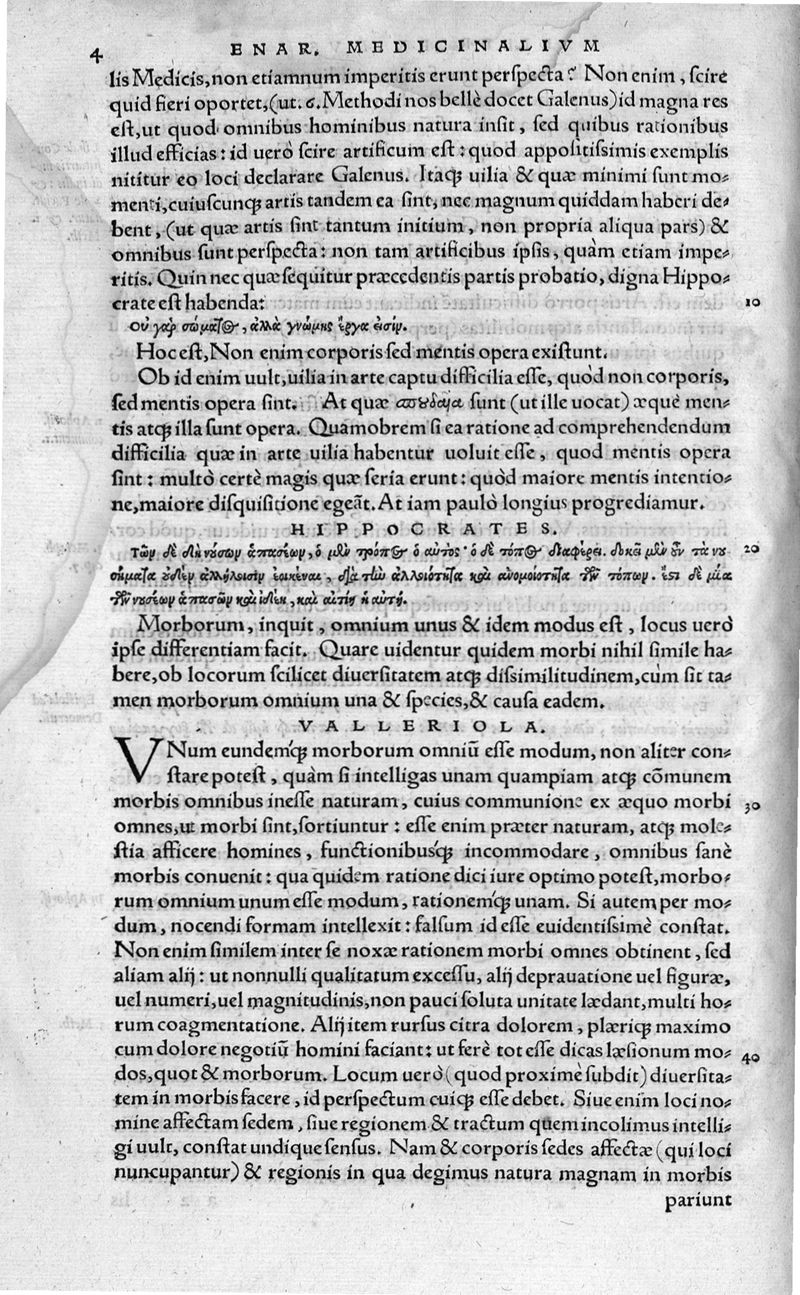 4 ENAR. MEDICINALIVM
lis Medicis, non etiamnum imperitis erunt perſpecta? Non enim, ſcire
quid fieri oportet, (ut. 6. Methodi nos bellè docet Galenus) id magna res
eſt, ut quod omnibus hominibus natura inſit, ſed quibus rationibus
illud efficias: id uerò ſcire artificum eſt: quod appoſitiſsimis exemplis
nititur eo loci declarare Galenus. Itaqꝫ uilia & quæ minimi ſunt mo-
menti, cuiuſcunqꝫ artis tandem ea ſint, nec magnum quiddam haberi de-
bent, (ut quæ artis ſint tantum initium, non propria aliqua pars) &
omnibus ſunt perſpecta: non tam artificibus ipſis, quàm etiam impe-
ritis. Quin nec quæ ſequitur præcedentis partis probatio, digna Hippo-
crate eſt habenda: 10
οὐ γὰρ σώματ(ος), ἀλλὰ γνώμης ἔργα εἰσίν.
Hoc eſt, Non enim corporis ſed mentis opera exiſtunt.
Ob id enim uult, uilia in arte captu difficilia eſſe, quòd non corporis,
ſed mentis opera ſint. At quæ σπουδαῖα ſunt (ut ille uocat) æquè men-
tis atqꝫ illa ſunt opera. Quamobrem ſi ea ratione ad comprehendendum
difficilia quæ in arte uilia habentur uoluit eſſe, quod mentis opera
ſint: multò certè magis quæ ſeria erunt: quòd maiore mentis intentio-
ne, maiore diſquiſitione egeāt. At iam paulò longius progrediamur.
HIPPOCRATES.
τῶν δὲ δὴ νούσων ἁπασέων, ὁ μὲν τρόπος ὁ αὐτός· ὁ δὲ τόπος διαφέρει. δοκεῖ μὲν οὖν τὰ νου 20
σήματα οὐδὲν ἀλλήλοισιν ἐοικέναι, διὰ τὴν ἀλλοιότητα καὶ ἀνομοιότητα τῶν τόπων. ἔστι δὲ μία
τῶν νουσέων ἁπασῶν καὶ ἰδέη, καὶ αἰτίη ἡ αὐτή.
Morborum, inquit, omnium unus & idem modus eſt, locus uerò
ipſe differentiam facit. Quare uidentur quidem morbi nihil ſimile ha-
bere, ob locorum ſcilicet diuerſitatem atqꝫ diſsimilitudinem, cùm ſit ta-
men morborum omnium una & ſpecies, & cauſa eadem.
VALLERIOLA.
VNum eundemq́ꝫ morborum omniū eſſe modum, non aliter con-
ſtare poteſt, quàm ſi intelligas unam quampiam atqꝫ cōmunem
morbis omnibus ineſſe naturam, cuius communione ex æquo morbi 30
omnes, ut morbi ſint, ſortiuntur: eſſe enim præter naturam, atqꝫ mole-
ſtia afficere homines, functionibusq́ꝫ incommodare, omnibus ſanè
morbis conuenit: qua quidem ratione dici iure optimo poteſt, morbo-
rum omnium unum eſſe modum, rationemq́ꝫ unam. Si autem per mo-
dum, nocendi formam intellexit: falſum id eſſe euidentiſsimè conſtat.
Non enim ſimilem inter ſe noxæ rationem morbi omnes obtinent, ſed
aliam alij: ut nonnulli qualitatum exceſſu, alij deprauatione uel figuræ,
uel numeri, uel magnitudinis, non pauci ſoluta unitate lædant, multi ho-
rum coagmentatione. Alij item rurſus citra dolorem, plæriqꝫ maximo
cum dolore negotiū homini faciant: ut ferè tot eſſe dicas læſionum mo- 40
dos, quot & morborum. Locum uerò (quod proximè ſubdit) diuerſita-
tem in morbis facere, id perſpectum cuiqꝫ eſſe debet. Siue enim loci no-
mine affectam ſedem, ſiue regionem & tractum quem incolimus intelli-
gi uult, conſtat undique ſenſus. Nam & corporis ſedes affectæ (qui loci
nuncupantur) & regionis in qua degimus natura magnam in morbis
pariunt